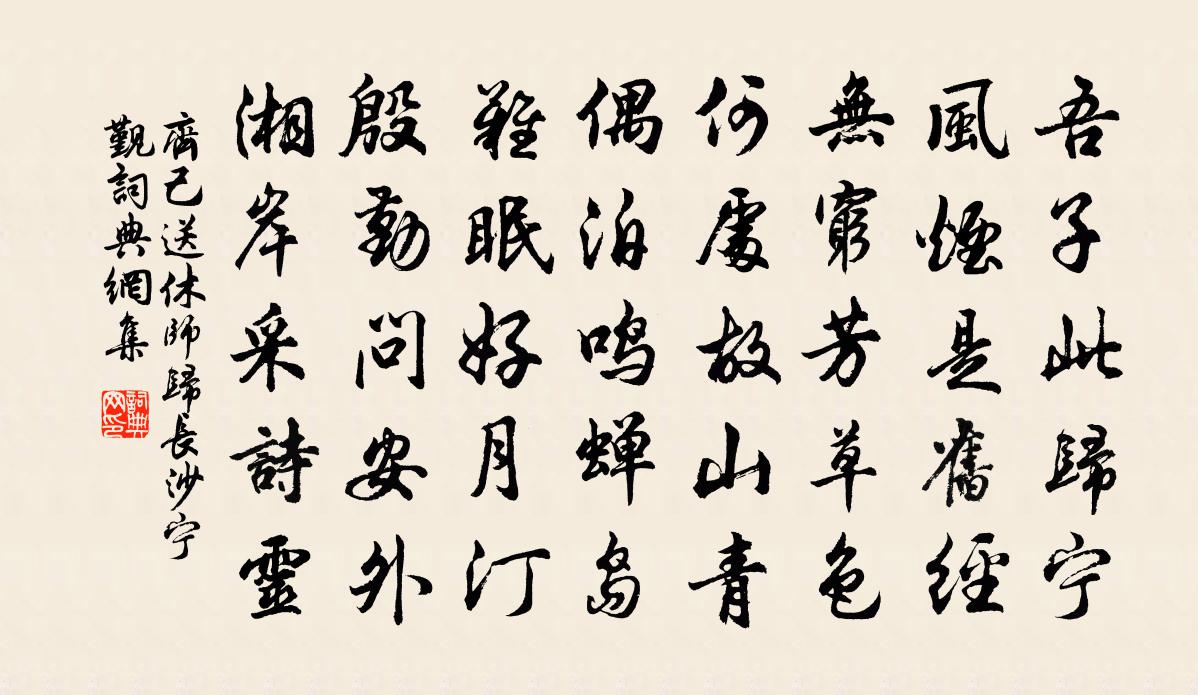 吾子此歸宁
風煙是舊經
無窮芳草色
何處故山青
偶泊鳴蟬島
難眠好月汀
殷勤問安外
湘岸采詩靈
齊己送休師歸長沙宁
觀詞典網集
詞典
网印